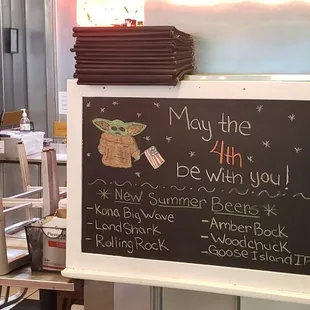 May the
4th
be with you!
New Summer Beers
- Kona Big Wave
- LandShark
- Rolling Rock
- Amber Bock
- Woodchuck
- Goose Island IP